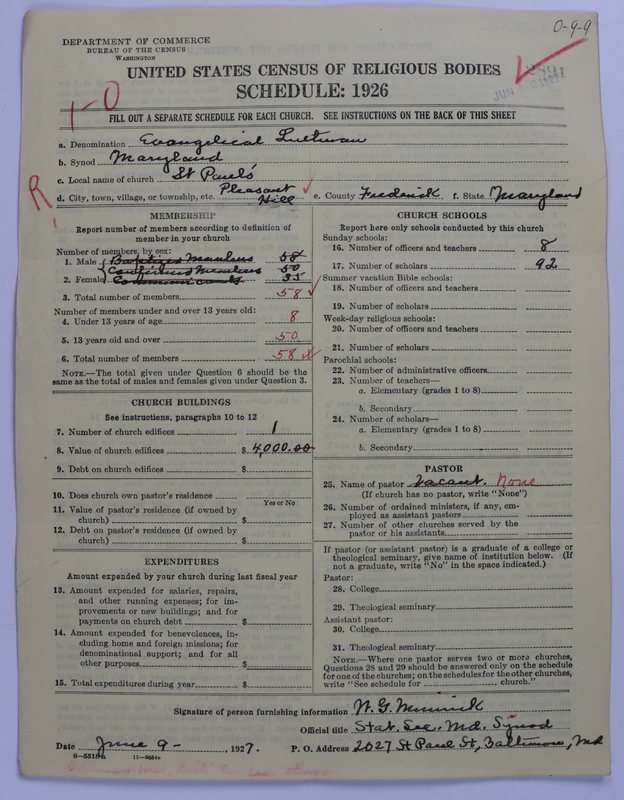 0-9-9
DEPARTMENT OF COMMERCE
BUREAU OF THE CENSUS
WASHINGTON
UNITED STATES CENSUS OF RELIGIOUS BODIES
JUN
SCHEDULE: 1926
1-0
FILL OUT A SEPARATE SCHEDULE FOR EACH CHURCH. SEE INSTRUCTIONS ON THE BACK OF THIS SHEET
a. Denomination Evangelical Lutheran
b. Synod Maryland
c. Local name of church St Pauls'
R
d. City, town, village, or township, etc. Pleasant Hill e. County Frederick f. State Maryland
MEMBERSHIP
Report number of members according to definition of
member in your church
Number of members, by sex:
1. Male Baptized Members 58
Confirmed Members 50
2. Female Communicants 35
3. Total number of members 58
Number of members under and over 13 years old:
4. Under 13 years of age 8
5. 13 years old and over 50
6. Total number of members 58
NOTE.—The total given under Question 6 should be the
same as the total of males and females given under Question 3.
CHURCH BUILDINGS
See instructions, paragraphs 10 to 12
7. Number of church edifices 1
8. Value of church edifices $4,000.00
9. Debt on church edifices $
10. Does church own pastor's residence
Yes or No
11. Value of pastor's residence (if owned by
church) $
12. Debt on pastor's residence (if owned by
church) $
EXPENDITURES
Amount expended by your church during last fiscal year
13. Amount expended for salaries, repairs,
and other running expenses; for im-
provements or new buildings; and for
payments on church debt $
14. Amount expended for benevolences, in-
cluding home and foreign missions; for
denominational support; and for all
other purposes $
15. Total expenditures during year $
CHURCH SCHOOLS
Report here only schools conducted by this church
Sunday schools:
16. Number of officers and teachers 8
17. Number of scholars 92
Summer vacation Bible schools:
18. Number of officers and teachers
19. Number of scholars
Week-day religious schools:
20. Number of officers and teachers
21. Number of scholars
Parochial schools:
22. Number of administrative officers
23. Number of teachers—
a. Elementary (grades 1 to 8)
b. Secondary
24. Number of scholars—
a. Elementary (grades 1 to 8)
b. Secondary
PASTOR
25. Name of pastor Vacant. None
(If church has no pastor, write "None")
26. Number of ordained ministers, if any, em-
ployed as assistant pastors
27. Number of other churches served by the
pastor or his assistants
If pastor (or assistant pastor) is a graduate of a college or
theological seminary, give name of institution below. (If
not a graduate, write "No" in the space indicated.)
Pastor:
28. College
29. Theological seminary
Assistant pastor:
30. College
31. Theological seminary
NOTE.—Where one pastor serves two or more churches,
Questions 28 and 29 should be answered only on the schedule
for one of the churches; on the schedules for the other churches,
write "See schedule for church."
Signature of person furnishing information W. G. Minnick
Official title Stat. Sec. Md. Synod
Date June 9 - , 1927. P. O. Address 2027 St Paul St, Baltimore, Md
8-5518a 11-9054